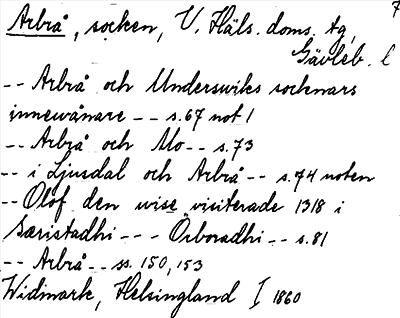 7
Arbrå, socken, V. Häls. doms. tg,
Gävleb. l
-- Arbrå och Underswiks socknars
innewånare -- s.67 not 1
-- Arbrå och Mo -- s.73
-- i Ljusdal och Arbrå -- s.74 noten
-- Olof den wise visiterade 1318 i
Særistadhi --- Örboradhi -- s.81
-- Arbrå -- ss. 150, 153
Widmark, Helsingland I 1860